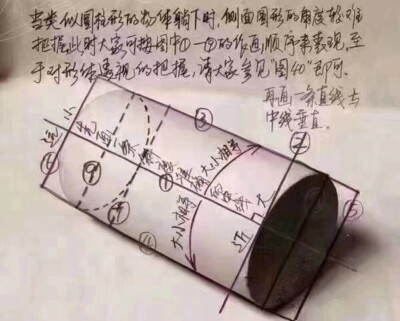 当类似圆柱形的物体躺下时，侧面圆形的角度较难
把握此时大家可按图中①—⑨的作画顺序来表现，至
于对形体透视的把握，请大家参见“图40”即可。
再画一条直线与
中线垂直。
小
远
先画
大小相等
大小相等
大
近
①
②
③
④
⑤
⑨